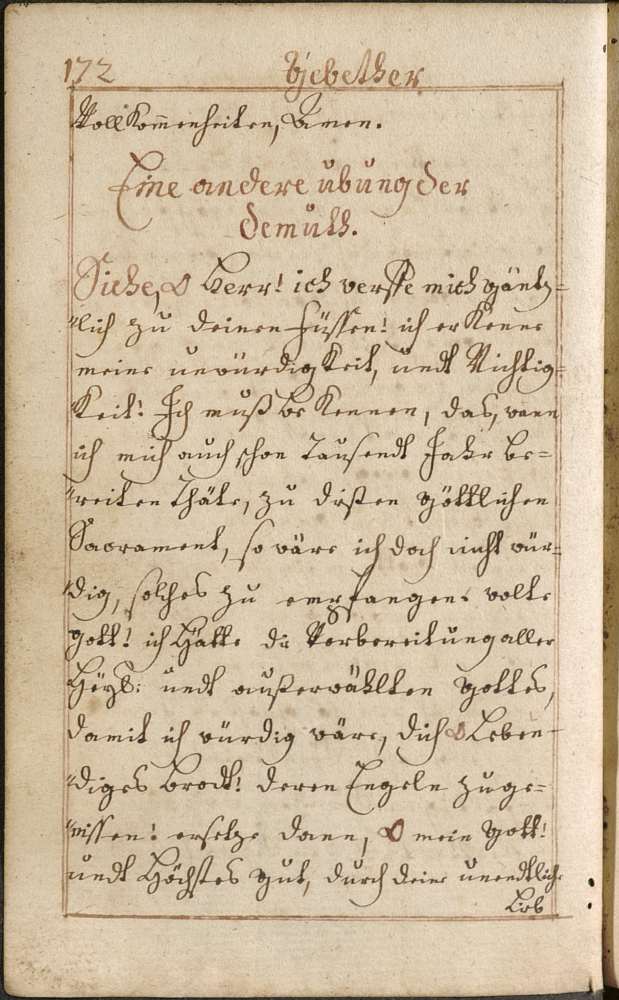 172 Gebether
Vollkom̄enheiten, Amen.
Eine andere übung der
demuth.
Siehe, O Herr! ich werffe mich gäntz=
lich zu deinen füssen! ich erkenne
meine unwürdigkeit, undt Nichtig=
keit! Ich muß bekennen, das, wann
ich mich auch schon tausendt Jahr be=
reiten thäte, zu disten göttlichen
Sacrament, so wäre ich doch nicht wür=
dig, solches zu empfangen. wolte
gott! ich hätte die Vorbereitung aller
Heyl: undt außerwählten gottes,
damit ich würdig wäre, dich O Leben=
diges brodt! deren Engeln zuge=
nissen! ersetze dann, O mein gott!
undt höchstes gut, durch deine unendtliche
Lieb